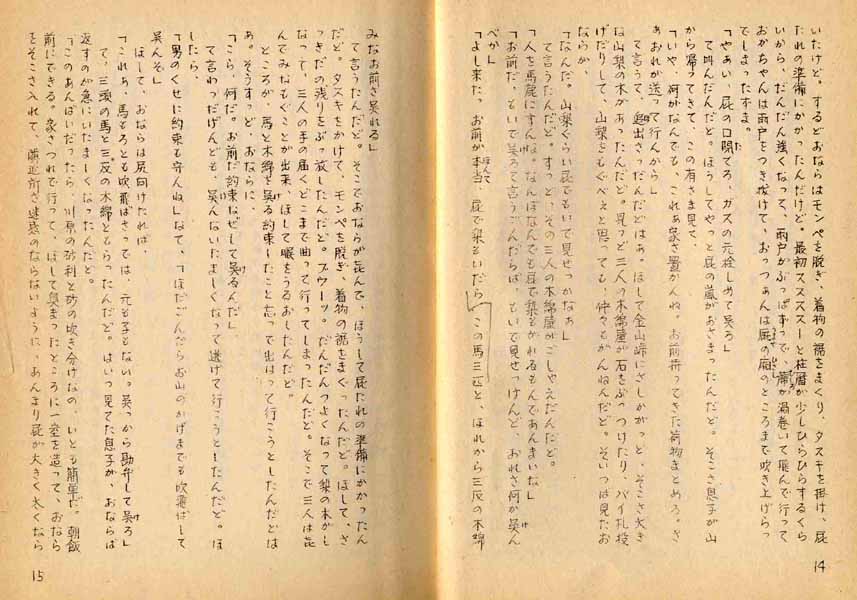 いたけど。するどおならはモンペを脱ぎ、着物の裾をまくり、タスキを掛け、屁
たれの準備にかかったんだけど。最初スススストーと柱暦が少しひらひらするくら
いから、だんだん強くなって、雨戸がぶっぱずって、席が渦巻いて飛んで行って
おかちゃんは雨戸をつき抜けて、おっつぁんは屁の風のところまで吹き上げらっ
でしまったずま。
「やあい、屁の口閉てろ、ガスの元栓しめて呉ろ」
て叫んだんだど。ほうしてやっと屁の嵐がおさまったんだど。そこさ息子が山
から帰ってきて、この有さま見て、
「いや、何がなんでも、これぁ家さ置かんね。お前持ってきた荷物まとめろ。さ
ぁおれが送って行んから」
て言うて、追出さったんだどはぁ。ほして金山峠にさしかがっと、そこさ大き
な山梨の木があったんだど。見っど三人の木綿屋が石をぶっつけたり、バイ札投
げだりして、山梨をもぐべぇと思っても、仲々もがんねんだど。そいつは見たお
ならが、
「なんだ。山梨ぐらい屁でもいで見せっかなぁ」
て言うたんだど。すっと、その三人の木綿屋がごしゃえだんだど。
「人を馬鹿にすんな。なんぼなんでも屁で梨もがれるもんであんまいな」
「お前だ、もいで呉ろて言うごんだらば、もいで見せっけんど、おれさ何か呉ん
べが」
「よし来た。お前が本当に屁で梨をいだら、この馬三匹と、ほれから三反の木綿
14
みなお前さ呉れる」
て言うたんだど。そこでおならが喜んで、ほうして屁たれの準備にかかったん
だど。タスキをかけて、モンペを脱ぎ、着物の裾をまぐったんだど。ほして、さ
っきだの残りをぶっ放したんだど。ブウーッ。だんだんつよくなって梨の木がし
なって、三人の手の届くどこまで曲って行ってしまったんだど。そこで三人は喜
んでみなもぐことが出来、ほして暇をうるおしたんだど。
ところが、馬と木綿を呉る約束したこと忘って出はって行こうとしたんだどは
ぁ。そうすっど、おならに、
「こら、何だ。お前だ約束なぜして呉るんだ」
て言わっだげんども、呉んないたよしくなって逃げて行こうとしたんだど。ほ
したら、
「男のくせに約束も守んね」なて、「ほだごんだらお山のかげまでも吹飛ばして
呉んぞ」
ほして、おならは尻向けたれば、
「これぁ、馬もろとも吹飛ばさっては、元も子もない。呉っから勘弁して呉ろ」
て、三頭の馬と三反の木綿ともらったんだど。はいつ見てた息子が、おならば
返すのが急にいたましくなったんだど。
「このあんばいだったら、川原の砂利と砂の吹き分けなの、いとも簡単だ。朝飯
前にできる。家さつれで行って、ほして臭まったところに一室を造って、おなら
をそこさ入れて、隣近所さ迷惑のならないように、あんまり屁が大きく太くなら
15